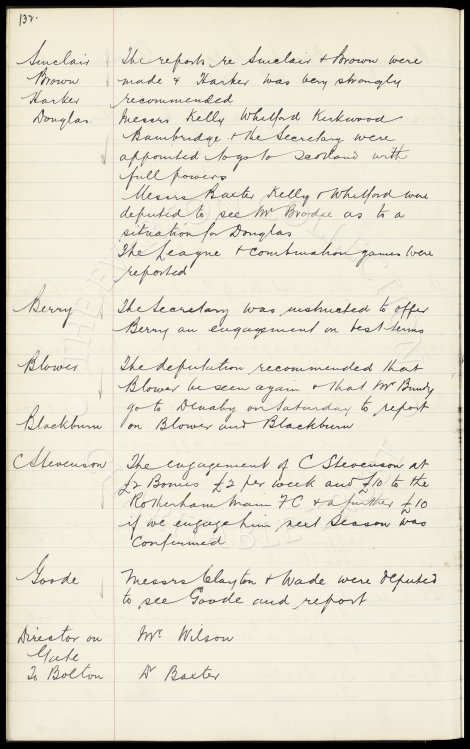 132.
Sinclair The reports re Sinclair & Brown were
Brown made & Harker was very strongly
Harker recommended
Douglas Messrs Kelly Whitford Kirkwood
Bainbridge & the Secretary were
appointed to go to Scotland with
full powers
Messrs Baxter Kelly & Whitford were
deputed to see Mr Brodie as to a
situation for Douglas
The League & Combination games were
reported
Berry The Secretary was instructed to offer
Berry an engagement on best terms
Blower The deputation recommended that
Blower be seen again & that Mr Bundy
go to Denaby on Saturday to report
Blackburn on Blower and Blackburn
C Stevenson The engagement of C Stevenson at
£2 Bonus £2 per week and £10 to the
Rotherham Main FC & a further £10
if we engage him next season was
Confirmed
Goode Messrs Clayton & Wade were deputed
to see Goode and report
Director on Mr Wilson
Gate
To Bolton Dr Baxter